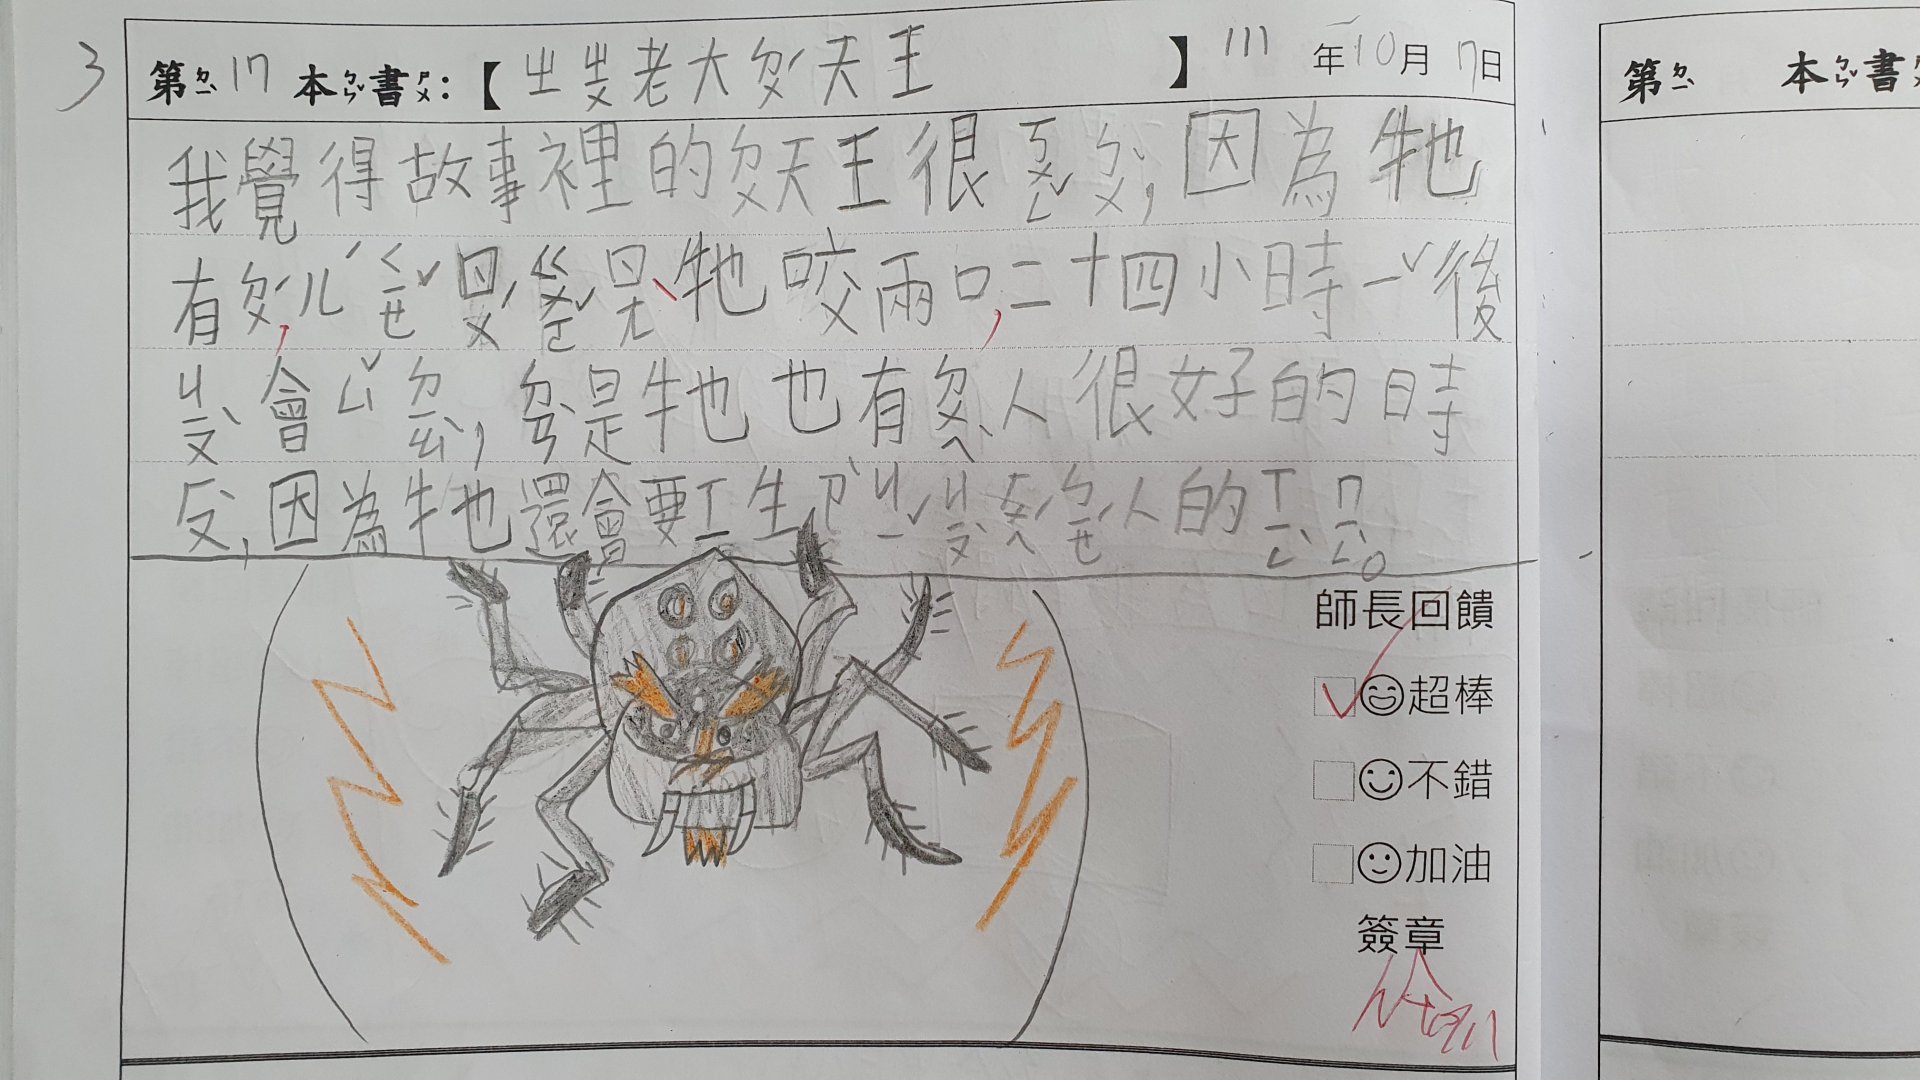 3
第ㄉㄧˋ 17 本ㄅㄣˇ書ㄕㄨ：【 老大ㄉㄨˊ天王 】 111 年 10 月 17 日
我覺得故事裡的ㄉㄨˊ天王很ㄎㄨㄥˇㄅㄨˋ，因為牠
有ㄉㄨˊ，ㄦˊㄑㄧㄝˇㄖㄨˊㄍㄨㄛˇ 牠咬兩口，二十四小時ㄧˇ後
ㄐㄧㄡˋ會ㄙˇㄉㄧㄠˋ，ㄉㄢˋ是牠也有ㄉㄨㄟˋ人很好的時
ㄏㄡˋ，因為牠還會要 生ㄗˋㄐㄧˇ 人的ㄒㄧㄥˋㄇㄧㄥˋ。
師長回饋
超棒
不錯
加油
簽章
第ㄉㄧˋ 本ㄅㄣˇ書